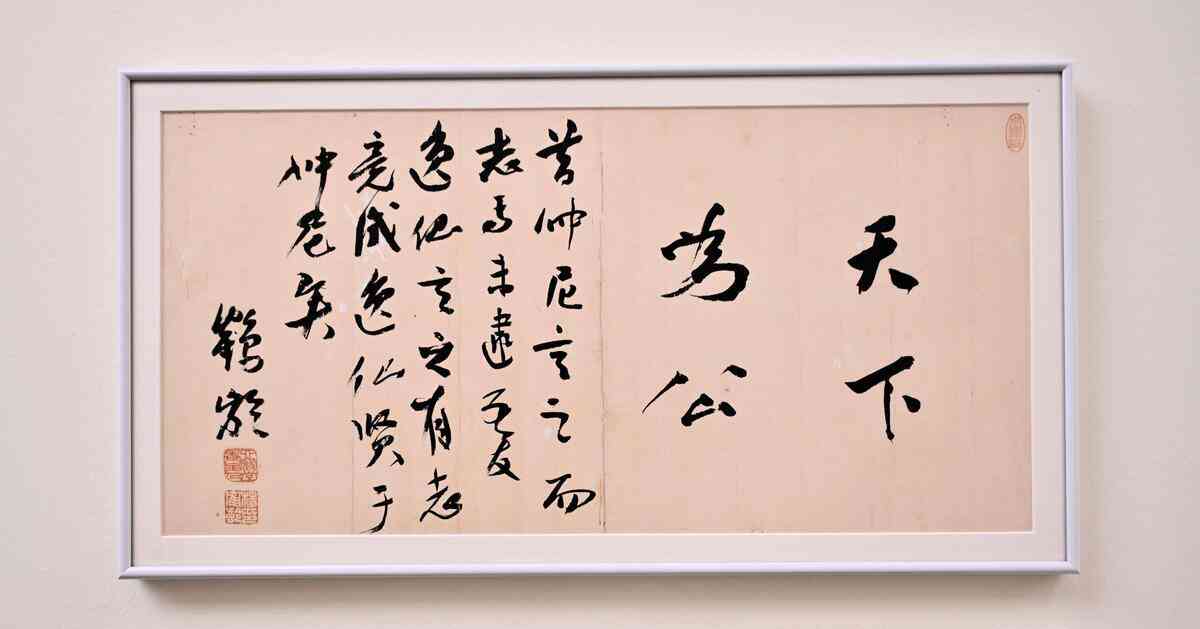 天下
為公
昔仲尼言之而
志焉未逮吾友
逸仙言之有志
竟成逸仙賢于
仲尼矣
鶴